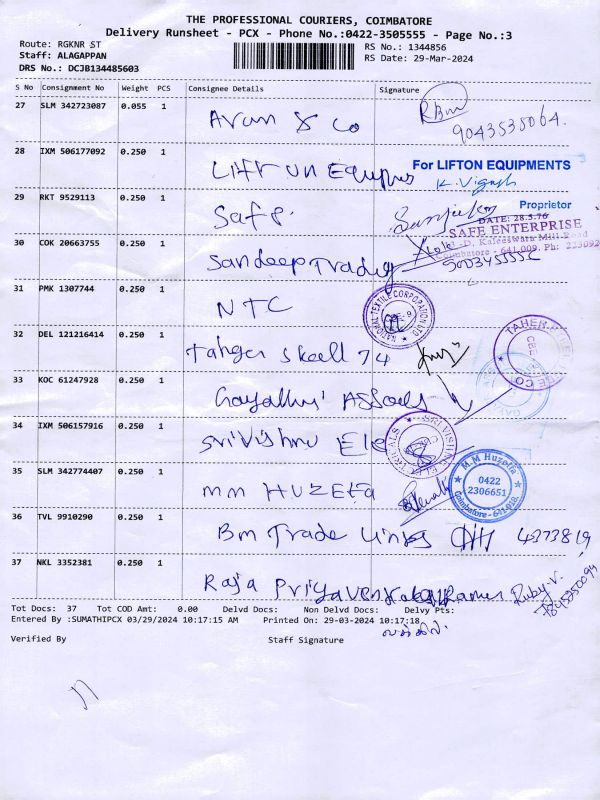 THE PROFESSIONAL COURIERS, COIMBATORE
Delivery Runsheet - PCX - Phone No.:0422-3505555 - Page No.:3
Route: RGKNR ST RS No.: 1344856
Staff: ALAGAPPAN RS Date: 29-Mar-2024
DRS No.: DCJB134485603
S No Consignment No Weight PCS Consignee Details Signature
27 SLM 342723087 0.055 1 Arun & Co RBm
9043535064.
28 IXM 506177092 0.250 1 Lift on Equipms For LIFTON EQUIPMENTS
K. Vignesh
Proprietor
29 RKT 9529113 0.250 1 Safe
DATE: 28.5.76
SAFE ENTERPRISE
30 COK 20663755 0.250 1 Sandeep Trading
31 PMK 1307744 0.250 1 NTC NATIONAL TEXTILE CORPORATION LTD
32 DEL 121216414 0.250 1 Taher skell 74 TAHER
33 KOC 61247928 0.250 1 Gayathri Assoces
34 IXM 506157916 0.250 1 Sri Vishnu Ele SRI VISHNU ELECTRICALS
35 SLM 342774407 0.250 1 MM HUZEFA M.M Huzeffa
0422
2306651
Coimbatore - 641 018.
36 TVL 9910290 0.250 1 Bm Trade Links 4373819
37 NKL 3352381 0.250 1 Raja Priya Ruby.V.
Tot Docs: 37 Tot COD Amt: 0.00 Delvd Docs: Non Delvd Docs: Delvy Pts:
Entered By :SUMATHIPCX 03/29/2024 10:17:15 AM Printed On: 29-03-2024 10:17:18
Verified By Staff Signature